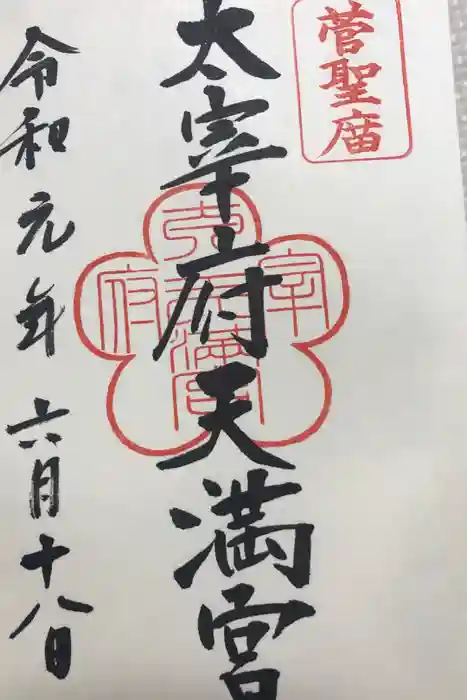 菅聖庿
太宰府天満宮
太宰府天満宮
令和元年六月十八日